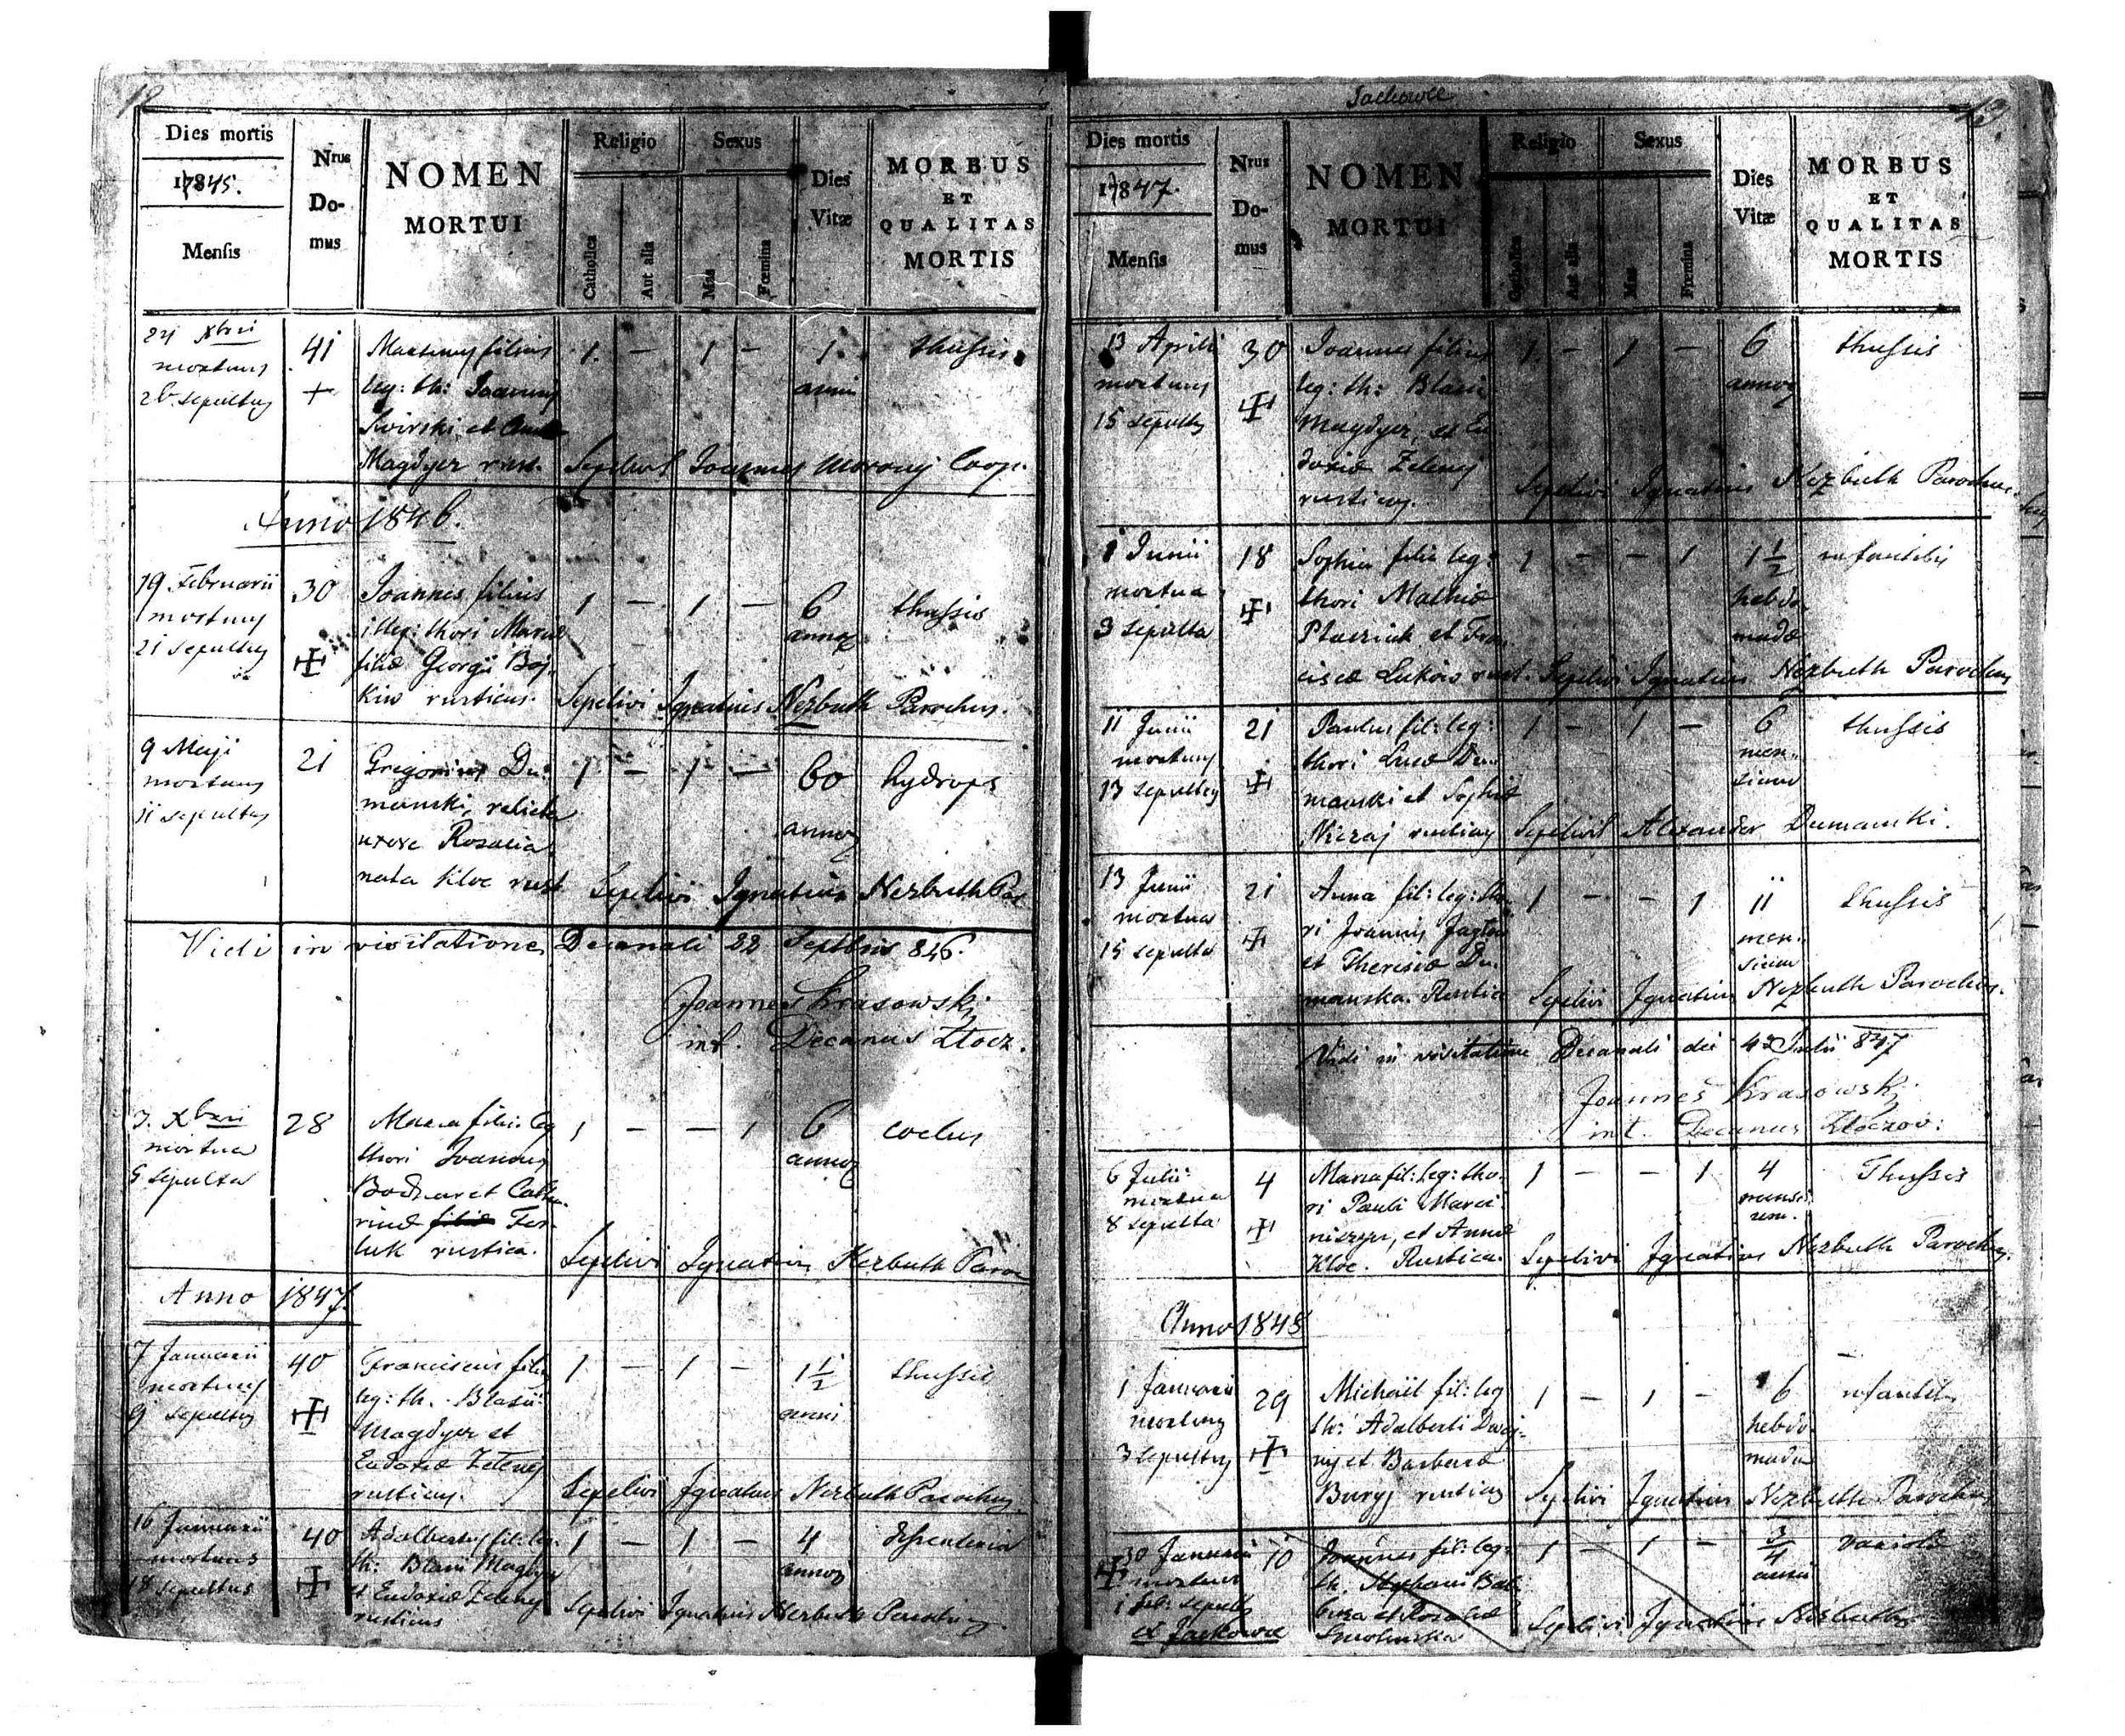 12
Dies mortis
17845.
Mensis
Nrus
Do-
mus
NOMEN
MORTUI
Religio
Catholica
Aut alia
Sexus
Mas
Fœmina
Dies
Vitæ
MORBUS
ET
QUALITAS
MORTIS
24 Xbri
mortuus
26 sepultus
41
filius
leg: th: Joannis
Swirski et
Magdyer rust.
1 — 1 —
1
anni
thussis
Sepelivit Joannes Morony Coop.
Anno 1846.
19 Februarii
mortuus
21 sepultus
30
Joannes filius
illeg: thori Mariæ
filiæ Georgii Boj
kiw rusticus.
1 — 1 —
6
annor
thussis
Sepelivi Ignatius Nezbuth Parochus.
9 Maji
mortuus
11 sepultus
21
Grigorius Du
manski, relicta
uxore Rosalia
nata Kloc rust
1 — 1 —
60
annor
hydrops
Sepelivi Ignatius Nezbuth Par
Vidi in visitatione Decanali 22 Septbris 846.
Joannes Krasowski
int. Decanus Złocz.
3. Xbri
mortua
5 sepulta
28
Maria filia leg
thori Joannis
Bodnar et Catha
rinæ
luk rustica.
1 — — 1
6
annor
Sepelivi Ignatius Nezbuth Paroc
Anno 1847.
7 Januarii
mortuus
9 sepultus
40
Franciscus filius
leg: th. Blasii
Magdyer et
Eudoxiæ Zeleney
rusticus.
1 — 1 —
1 1/2
anni
thussis
Sepelivi Ignatius Nezbuth Parochus
16 Januarii
mortuus
18 sepultus
40
Adalbertus fil: leg:
th: Blasii Magdyer
et Eudoxiæ Zeleney
rusticus
1 — 1 —
4
annor
Sepelivi Ignatius Nezbuth Parochus
Jackowce
13
Dies mortis
17847.
Mensis
Nrus
Do-
mus
NOMEN
MORTUI
Religio
Catholica
Aut alia
Sexus
Mas
Fœmina
Dies
Vitæ
MORBUS
ET
QUALITAS
MORTIS
13 Aprili
mortuus
15 sepultus
30
Joannes filius
leg: th: Blasii
Magdyer, et Eu
doxiæ Zeleney
rusticus.
1 — 1 —
6
annor
thussis
Sepelivi Ignatius Nezbuth Parochus
1 Junii
mortua
3 sepulta
18
Sophia filia leg:
thori Mathiæ
et Fran
ciscæ Luków rust.
1 — — 1
1 1/2
hebdo
madæ
infantilis
Sepelivi Ignatius Nezbuth Parochus
11 Junii
mortuus
13 sepultus
21
Paulus fil: leg:
thori Lucæ Du
manski et Sophiæ
Niczaj rusticus
1 — 1 —
6
men
sium
thussis
Sepelivit Alexander Dumanski.
13 Junii
mortua
15 sepulta
21
Anna fil: leg: tho
ri Joannis
et Theresiæ Du
manska. Rustica
1 — — 1
11
men
sium
thussis
Sepelivi Ignatius Nezbuth Parochus.
Vidi in visitatione Decanali die 4a Julii 847
Joannes Krasowski
int. Decanus Złoczov:
6 Julii
mortua
8 sepulta
4
Maria fil: leg: tho
ri Pauli Marci
niszyn, et Annæ
Kloc. Rustica.
1 — — 1
4
mensi
um.
Thussis
Sepelivi Ignatius Nezbuth Parochus.
Anno 1848
1 Januarii
mortuus
3 sepultus
29
Michaël fil: leg
th: Adalberti
et Barbaræ
Buryj rusticus
1 — 1 —
6
hebdo
madæ
infantilis
Sepelivi Ignatius Nezbuth Parochus
30 Januarii
mortuus
1 feb: sepultus
ex Jackowce
10
Joannes fil: leg:
th. Stephani
et Rosaliæ
Smolinska
1 — 1 —
3/4
anni
variolæ
Sepelivi Ignatius Nezbuth